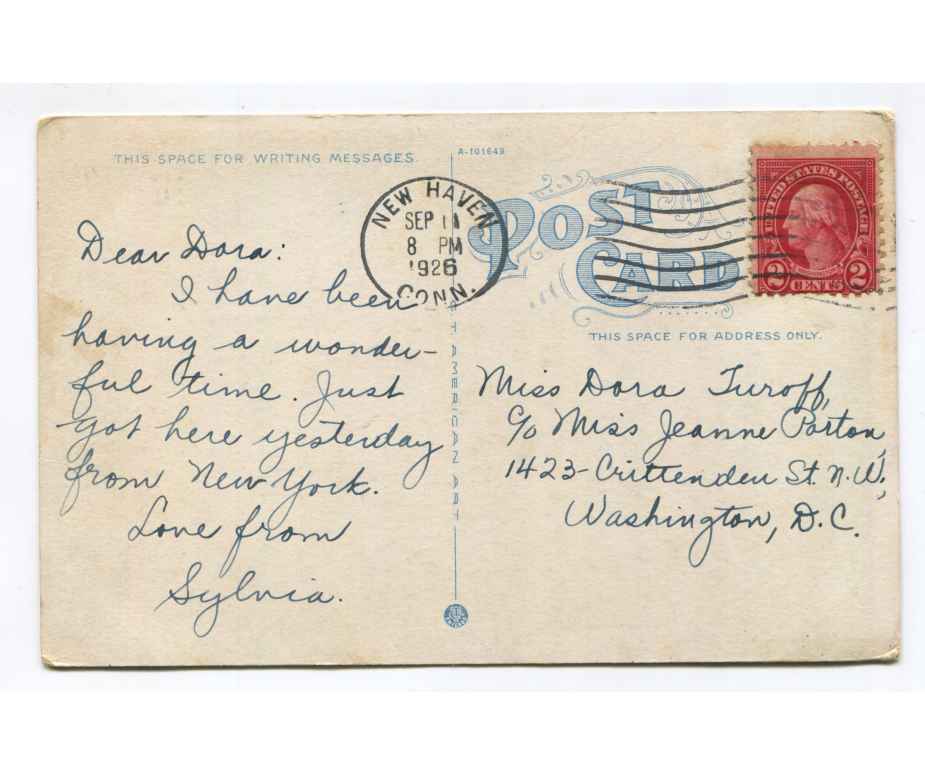 THIS SPACE FOR WRITING MESSAGES.
A-101649
Dear Dora:
I have been
having a wonder-
ful time. Just
got here yesterday
from New York.
Love from
Sylvia.
NEW HAVEN
SEP 11
8 PM
1926
CONN.
POST
CARD
UNITED STATES POSTAGE
2 CENTS 2
THIS SPACE FOR ADDRESS ONLY.
Miss Dora Turoff,
c/o Miss Jeanne Porton,
1423-Crittenden St. N.W.,
Washington, D.C.
AMERICAN ART